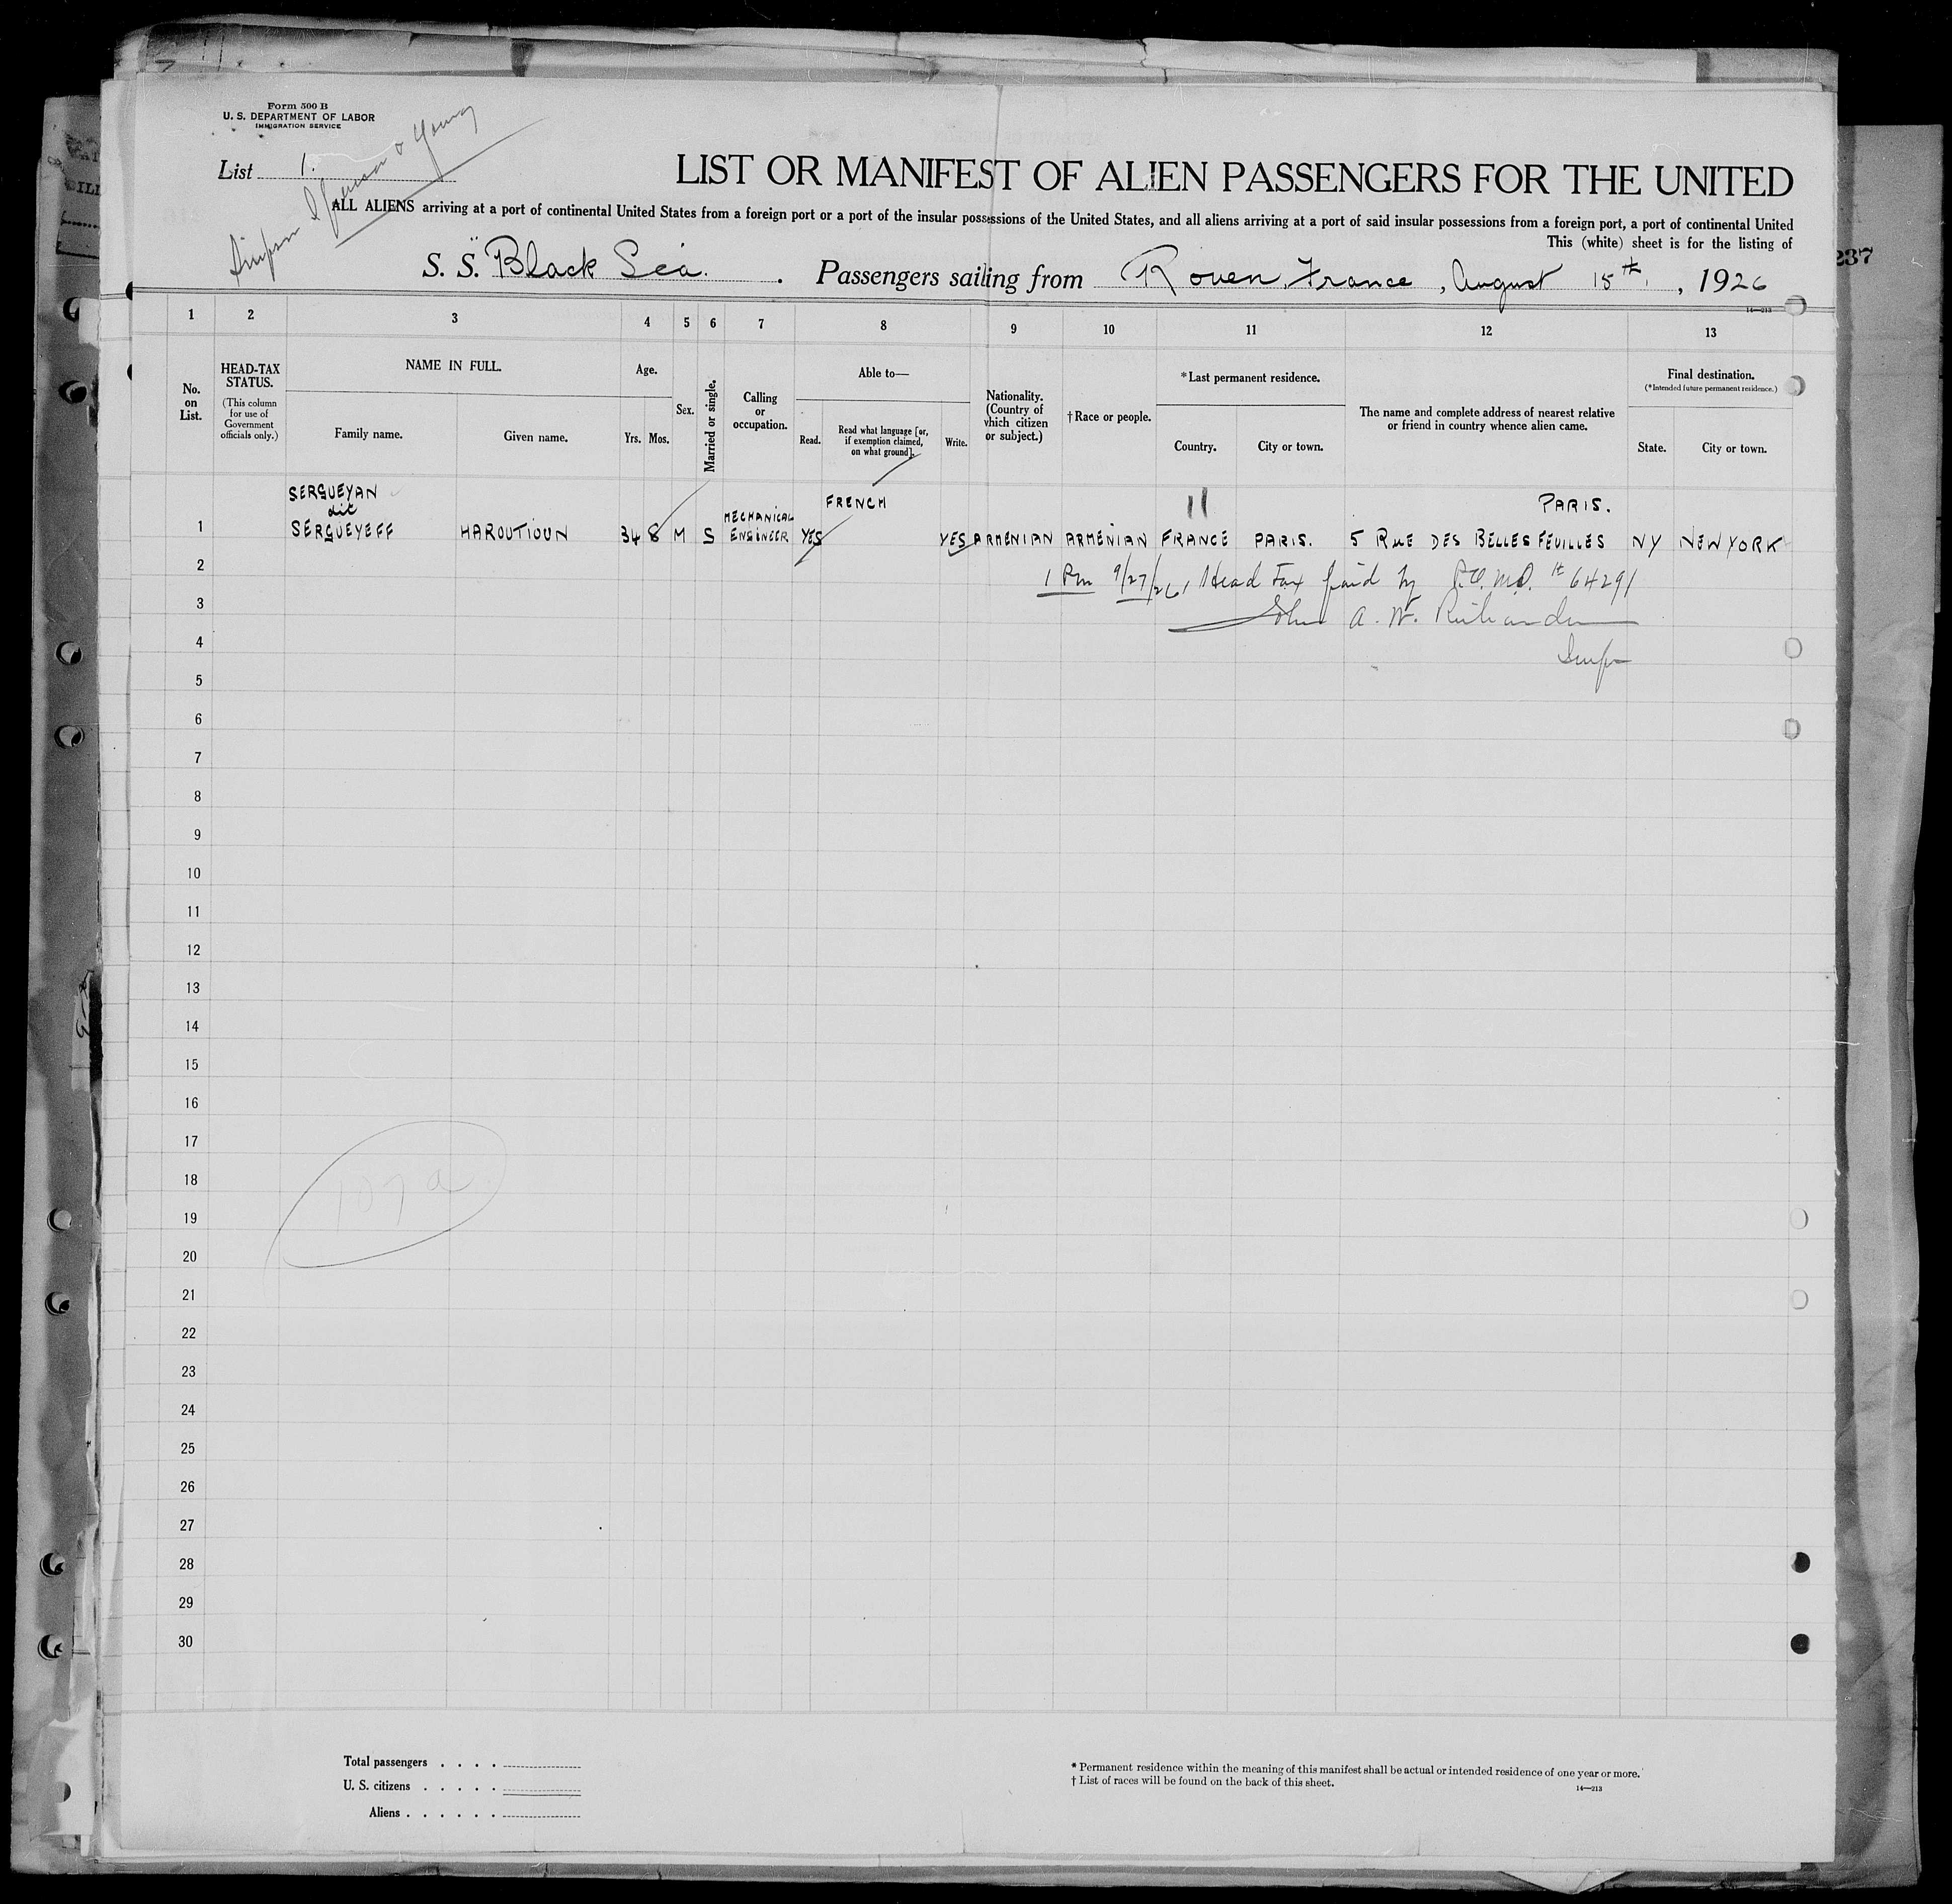 Form 500 B
U. S. DEPARTMENT OF LABOR
IMMIGRATION SERVICE
List 1.
LIST OR MANIFEST OF ALIEN PASSENGERS FOR THE UNITED
ALL ALIENS arriving at a port of continental United States from a foreign port or a port of the insular possessions of the United States, and all aliens arriving at a port of said insular possessions from a foreign port, a port of continental United
This (white) sheet is for the listing of
237
S. S. "Black Sea. . Passengers sailing from Rouen, France, August 15th, 1926
14—213
1 2 3 4 5 6 7 8 9 10 11 12 13
No. on List.
HEAD-TAX STATUS.
(This column for use of Government officials only.)
NAME IN FULL.
Family name. Given name.
Age.
Yrs. Mos.
Sex.
Married or single.
Calling or occupation.
Able to—
Read.
Read what language [or, if exemption claimed, on what ground].
Write.
Nationality. (Country of which citizen or subject.)
†Race or people.
*Last permanent residence.
Country. City or town.
The name and complete address of nearest relative or friend in country whence alien came.
Final destination.
(*Intended future permanent residence.)
State. City or town.
SERGUEYAN FRENCH 11 PARIS.
dit
1 SERGUEYEFF HAROUTIOUN 34 8 M S MECHANICAL ENGINEER YES YES ARMENIAN ARMENIAN FRANCE PARIS. 5 RUE DES BELLES FEUILLES NY NEW YORK
2 1 Pm 9/27/26, Head Tax paid by 64291
3 John A. W.
4
5
6
7
8
9
10
11
12
13
14
15
16
17
18
107 a
19
20
21
22
23
24
25
26
27
28
29
30
Total passengers . . . .
U. S. citizens . . . . .
Aliens . . . . . .
* Permanent residence within the meaning of this manifest shall be actual or intended residence of one year or more.
† List of races will be found on the back of this sheet.
14—213